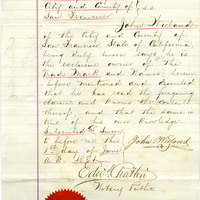 City and County of } s.s.
San Francisco
John Wieland
of the City and County of
San Francisco State of California,
being duly sworn says he is
the exclusive owner of the
Trade Mark and Name herein
before mentioned and described
that he has read the foregoing
and knows the contents
thereof, and that the same is
true of his own knowledge.
Subscribed & Sworn
to before me this
day of June
A.D.
John Wieland
Notary Public